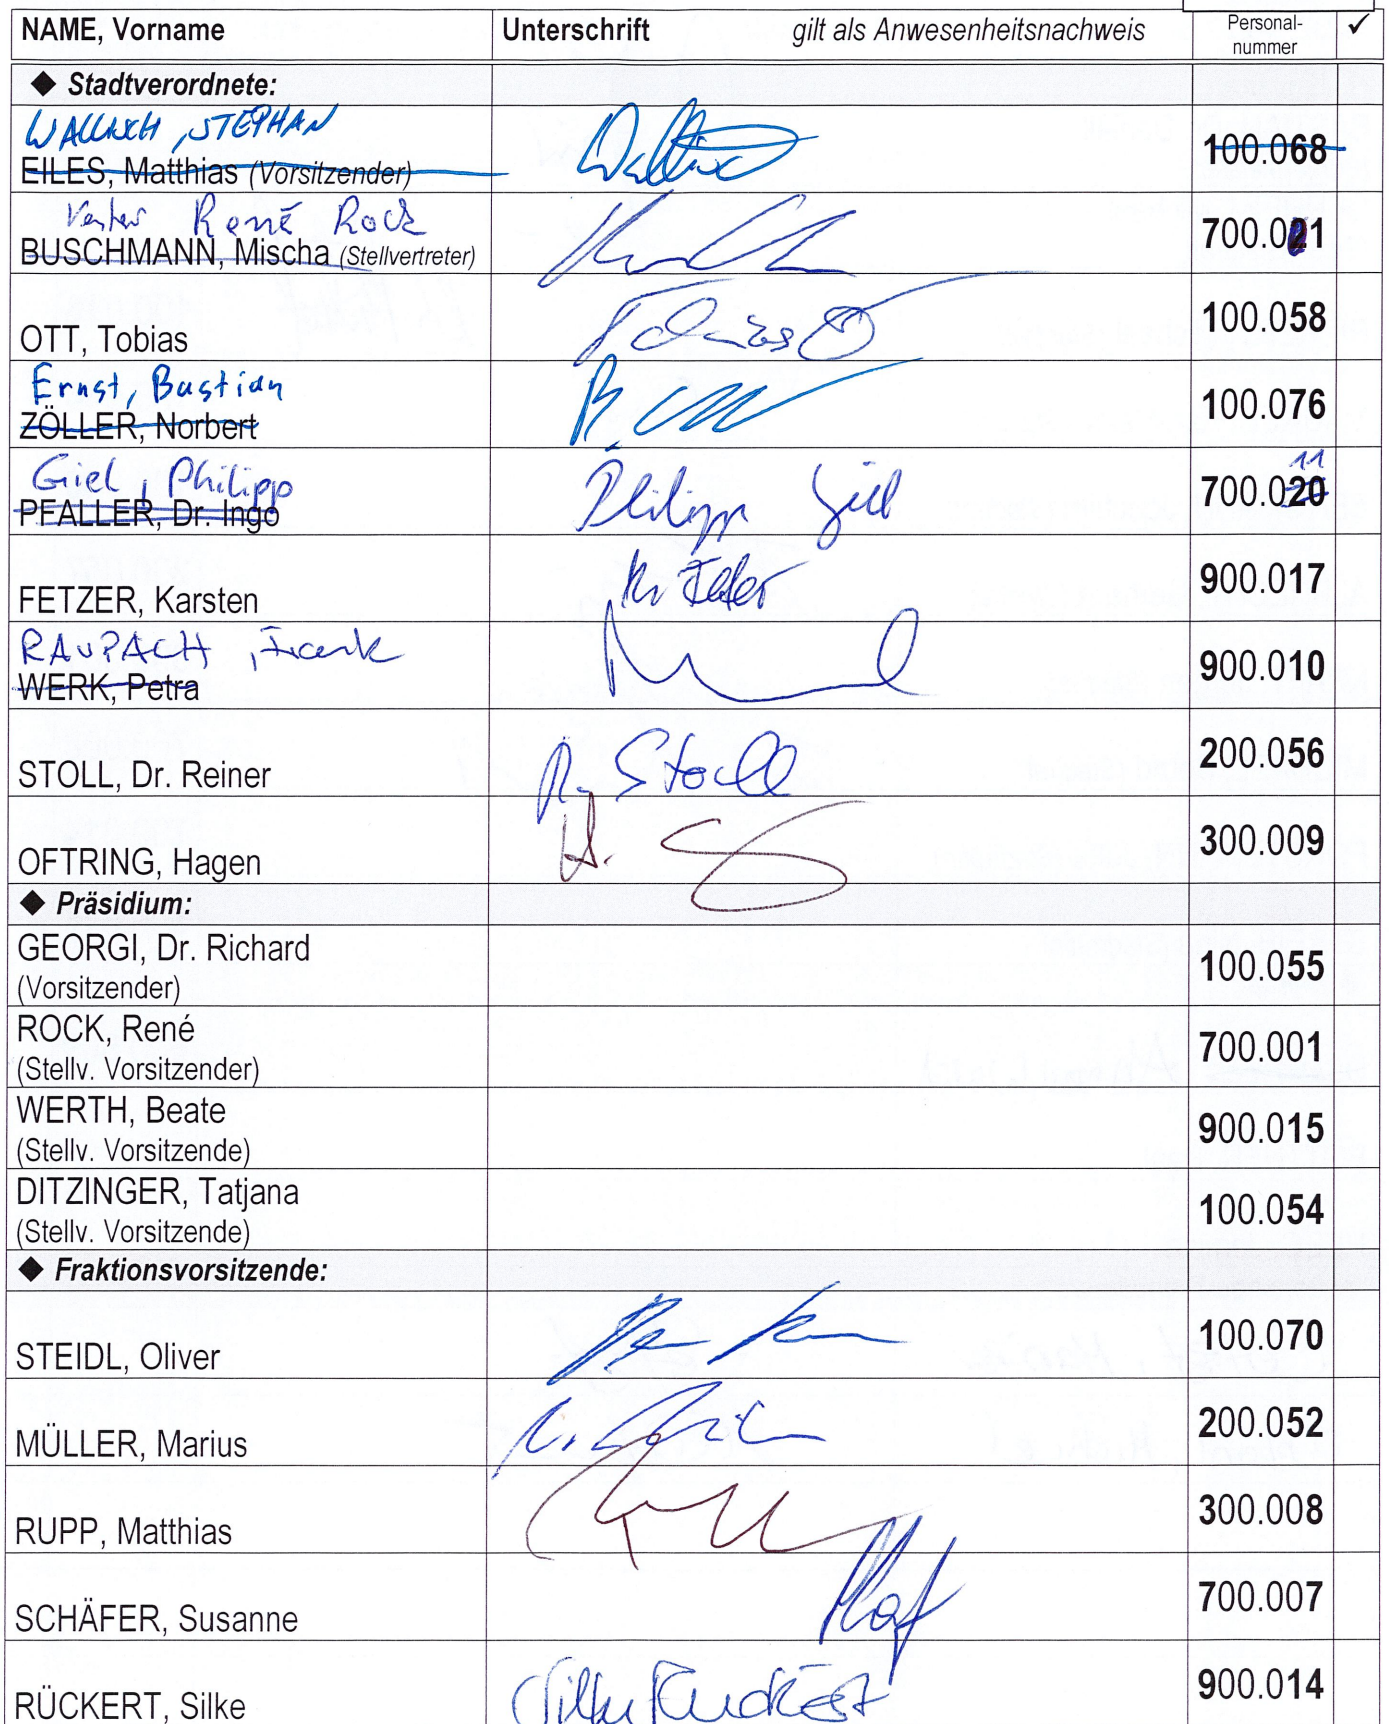 NAME, Vorname Unterschrift gilt als Anwesenheitsnachweis Personal-
nummer ✓
◆ Stadtverordnete:
WALLISCH, STEPHAN
EILES, Matthias (Vorsitzender) 100.068
René Rock
BUSCHMANN, Mischa (Stellvertreter) 700.021
OTT, Tobias Tobias 100.058
Ernst, Bastian
ZÖLLER, Norbert 100.076
Giel, Philipp 11
PFALLER, Dr. Ingo Philipp Giel 700.020
FETZER, Karsten 900.017
RAUPACH, Frank
WERK, Petra 900.010
STOLL, Dr. Reiner R. Stoll 200.056
OFTRING, Hagen H. 300.009
◆ Präsidium:
GEORGI, Dr. Richard
(Vorsitzender) 100.055
ROCK, René
(Stellv. Vorsitzender) 700.001
WERTH, Beate
(Stellv. Vorsitzende) 900.015
DITZINGER, Tatjana
(Stellv. Vorsitzende) 100.054
◆ Fraktionsvorsitzende:
STEIDL, Oliver 100.070
MÜLLER, Marius 200.052
RUPP, Matthias 300.008
SCHÄFER, Susanne 700.007
RÜCKERT, Silke Silke Rückert 900.014